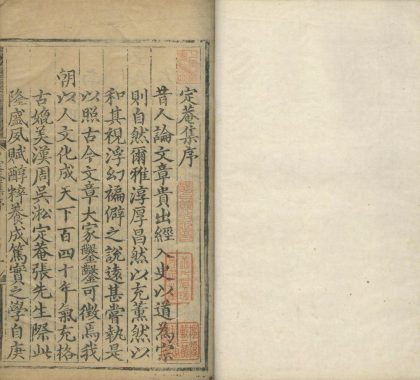 定菴集序
昔人論文章貴出經入史以道為宗
則自然爾雅淳厚昌然以充薰然以
和其視浮幻褊僻之說遠甚嘗執是
以照古今文章大家鑿鑿可徵焉我
朝以人文化成天下百四十年氣充格
古媲美漢周吳淞定菴張先生際此
隆盛夙賦醇粹養成篤實之學自庚